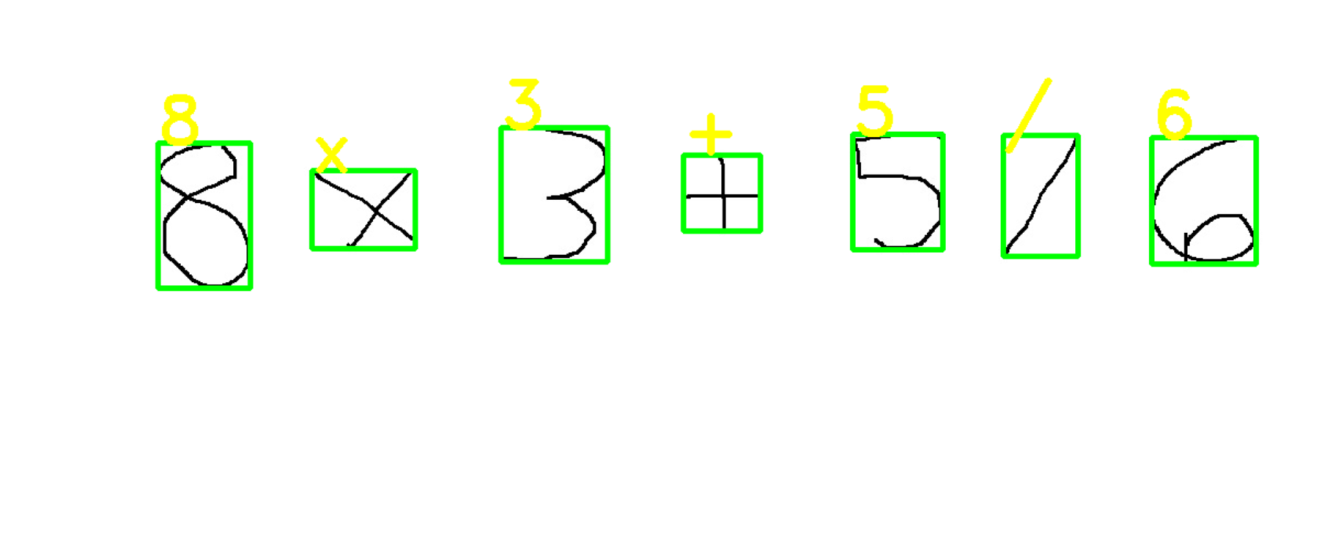 8 x 3 + 5 / 6
8 x 3 + 5 / 6